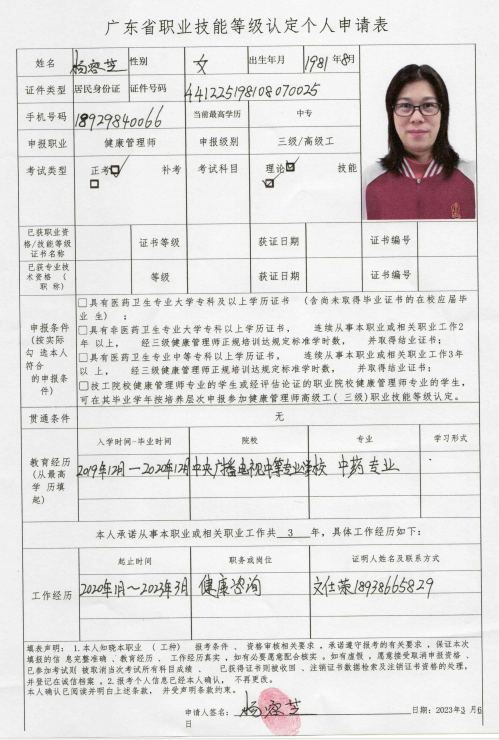 广东省职业技能等级认定个人申请表
姓名 杨容芝 性别 女 出生年月 1981年8月
证件类型 居民身份证 证件号码 441225198108070025
手机号码 18929840066 当前最高学历 中专
申报职业 健康管理师 申报级别 三级/高级工
考试类型 正考 补考 考试科目 理论 技能
已获职业资格/技能等级证书名称 证书等级 获证日期 证书编号
已获专业技术资格（职称） 等级 获证日期 证书编号
申报条件(按实际勾选本人符合的申报条件)
□具有医药卫生专业大学专科及以上学历证书（含尚未取得毕业证书的在校应届毕
业生）；
□具有非医药卫生专业大学专科以上学历证书， 连续从事本职业或相关职业工作2
年以上， 经三级健康管理师正规培训达规定标准学时数， 并取得结业证书；
□具有医药卫生专业中等专科以上学历证书， 连续从事本职业或相关职业工作3年
以上， 经三级健康管理师正规培训达规定标准学时数， 并取得结业证书；
□技工院校健康管理师专业的学生或经评估论证的职业院校健康管理师专业的学生，
可在其毕业学年按培养层次申报参加健康管理师高级工(三级)职业技能等级认定。
贯通条件 无
教育经历(从最高学历填起) 入学时间-毕业时间 院校 专业 学习形式
2019年12月—2020年12月 中央广播电视中等专业学校 中药专业
本人承诺从事本职业或相关职业工作共 3 年，具体工作经历如下：
工作经历 起止时间 职务或岗位 证明人姓名及联系方式
2020年1月～2023年3月 健康咨询 文仕荣18938665829
填表声明：1.本人知晓本职业（工种）报考条件、资格审核相关要求。承诺遵守报考的有关要求，保证本次
填报的信息完整准确、教育经历、工作经历真实，如有必要愿意配合核实。如有虚假，愿意接受取消申报资格、
已参加考试则被取消当次考试所有科目成绩、已获得证书则被收回、注销证书数据检索及注销证书资格的处理，
并登记在诚信档案。2.报考个人信息已经本人确认，不再更改。
本人确认已阅读并明白上述条款，并受声明条款约束。
申请人签名：杨容芝 日期：2023年3月6
日